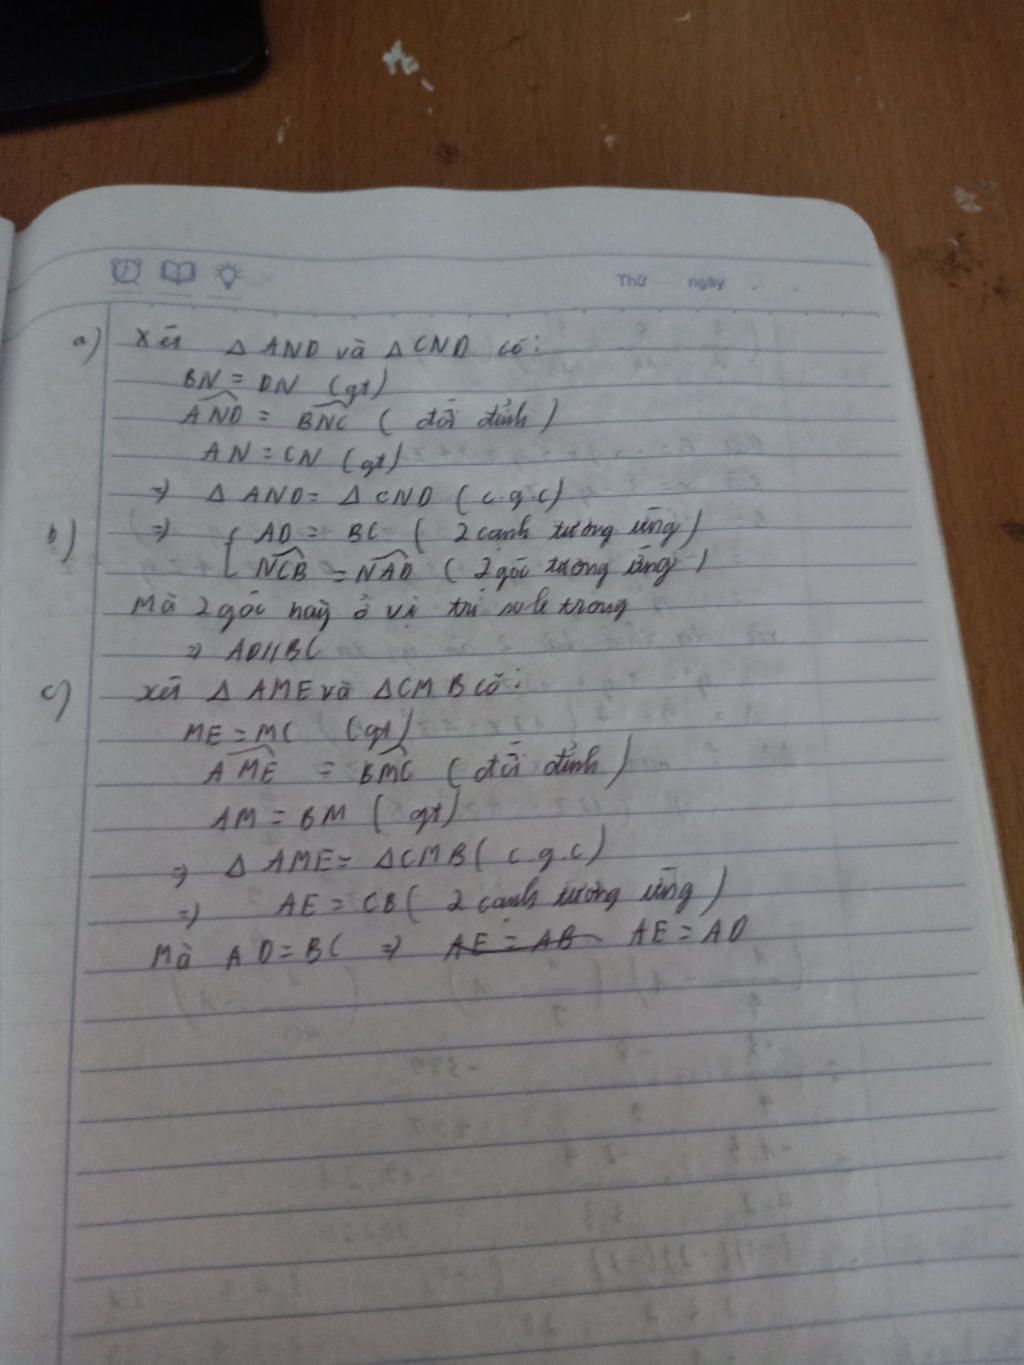 Thứ ngày
a) Xét △ AND và △ CND có:
BN = DN (gt)
AND = BNC ( đối đỉnh )
AN = CN (gt)
=> △ AND = △ CND ( c.g.c )
b) => { AD = BC ( 2 cạnh tương ứng )
NCB = NAD ( 2 góc tương ứng )
Mà 2 góc này ở vị trí so le trong
=> AD // BC
c) xét △ AME và △ CMB có:
ME = MC (gt)
AME = BMC ( đối đỉnh )
AM = BM ( gt )
=> △ AME = △ CMB ( c.g.c )
=> AE = CB ( 2 cạnh tương ứng )
Mà AD = BC => AE = AB AE = AD